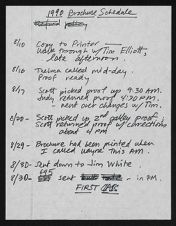 1998 Brochure Schedule
8/10 Copy to Printer —
Walk through w/Tim Elliott,
late afternoon.
8/16 Thelma called mid-day.
Proof ready
8/17 Scott picked proof up 9:30 AM.
Judy returned proof 4:30 PM.
- went over changes w/ Tim.
8/20 - Scott picked up 2nd galley proof;
Scott returned proof w/corrections
about 4 PM
8/29 - Brochure had been printed when
I called Wayne this AM.
8/30 - Sent down to Jim White
8/30 - sent - in PM.
FIRST